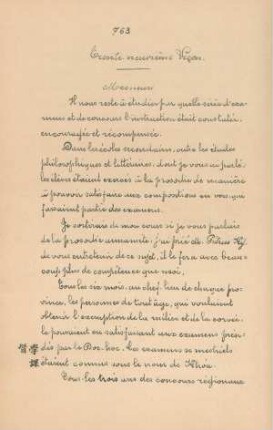 763
Trente neuvième Leçon.
Messieurs
Il nous reste à étudier par quelle série d'exa-
mens et de concours l'instruction était constatée,
encouragée et récompensée.
Dans les écoles secondaires, outre les études
philosophiques et littéraires, dont je vous ai parlé
les élèves étaient exercés à la prosodie de manière
à pouvoir satisfaire aux compositions en vers qui
faisaient partie des examens.
Je sortirais de mon cours si je vous parlais
de la prosodie annamite; j'ai prié M.
de vous entretenir de ce sujet, il le fera avec beau-
coup plus de compétence que moi.
Tous les six mois, au chef lieu de chaque pro-
vince, les personnes de tout âge, qui voulaient
obtenir l'exemption de la milice et de la corvée,
le pouvaient en satisfaisant aux examens prési-
dés par le Doc-hoc. Ces examens semestriels
習學 étaient connus sous le nom de Khoa
課
Tous les trois ans des concours régionaux